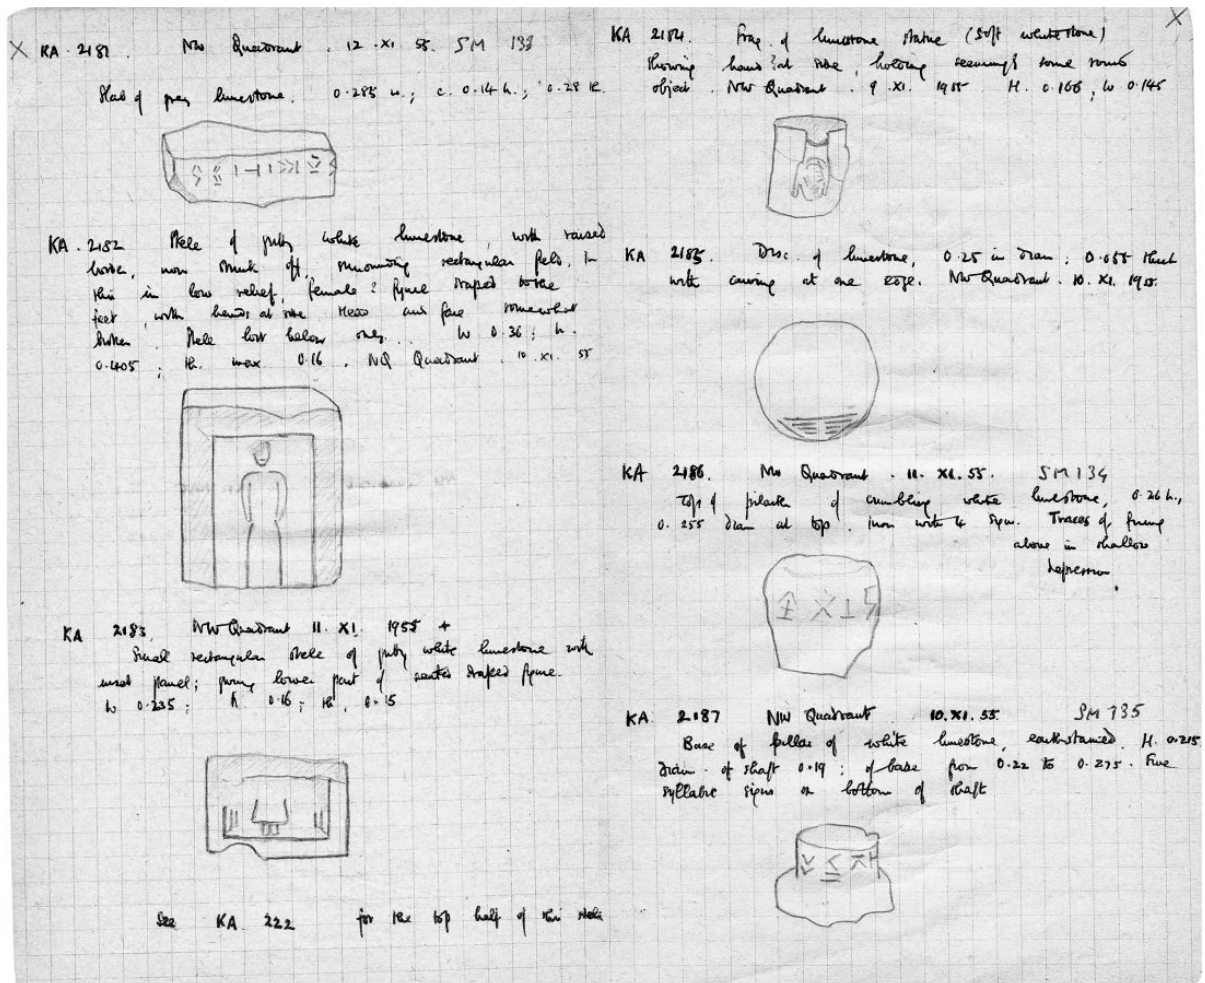 KA 2181. NW Quadrant. 12.XI.55. SM 133
Slab of grey limestone. 0.285 w.; c. 0.14 h.; 0.28 th.
KA. 2182 Stele of putty white limestone, with raised
border, now struck off, surrounding rectangular field. In
this in low relief, female? figure draped to the
feet, with hands at side. Head and face somewhat
broken. Stele lost below ... W 0.36; h.
0.405; th. max 0.16. NQ Quadrant. 10.XI.55
KA 2183. NW Quadrant 11.XI.1955 +
Small rectangular stele of putty white limestone with
inset panel; giving lower part of seated draped figure.
W 0.235; h 0.16; th. 0.15
See KA 222 for the top half of this stele
KA 2184. Frag. of limestone statue (soft white stone)
showing hand? at side, holding seemingly some round
object. NW Quadrant. 9.XI.1955 H. 0.166; W 0.145
KA 2185. Disc. of limestone, 0.25 in diam; 0.055 thick
with carving at one edge. NW Quadrant. 10.XI.1955.
KA 2186. NW Quadrant. 11.XI.55. SM 134
Top of pilaster of crumbling white limestone, 0.26 h.,
0.255 diam at top. Inscr with 4 signs. Traces of fixing
above in shallow
depression.
KA 2187 NW Quadrant. 10.XI.55. SM 135
Base of pillar of white limestone, earthstained. H. 0.215
Diam. of shaft 0.19; of base from 0.22 to 0.275. Five
syllabic signs on bottom of shaft